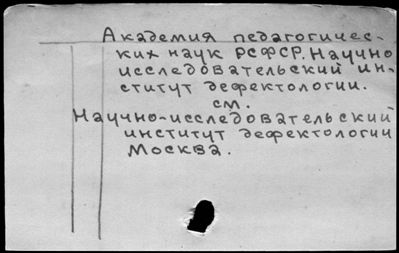 Академия педагогичес-
ких наук РСФСР. Научно
исследовательский ин-
ститут дефектологии.
см.
Научно-исследовательский
институт дефектологии
Москва.